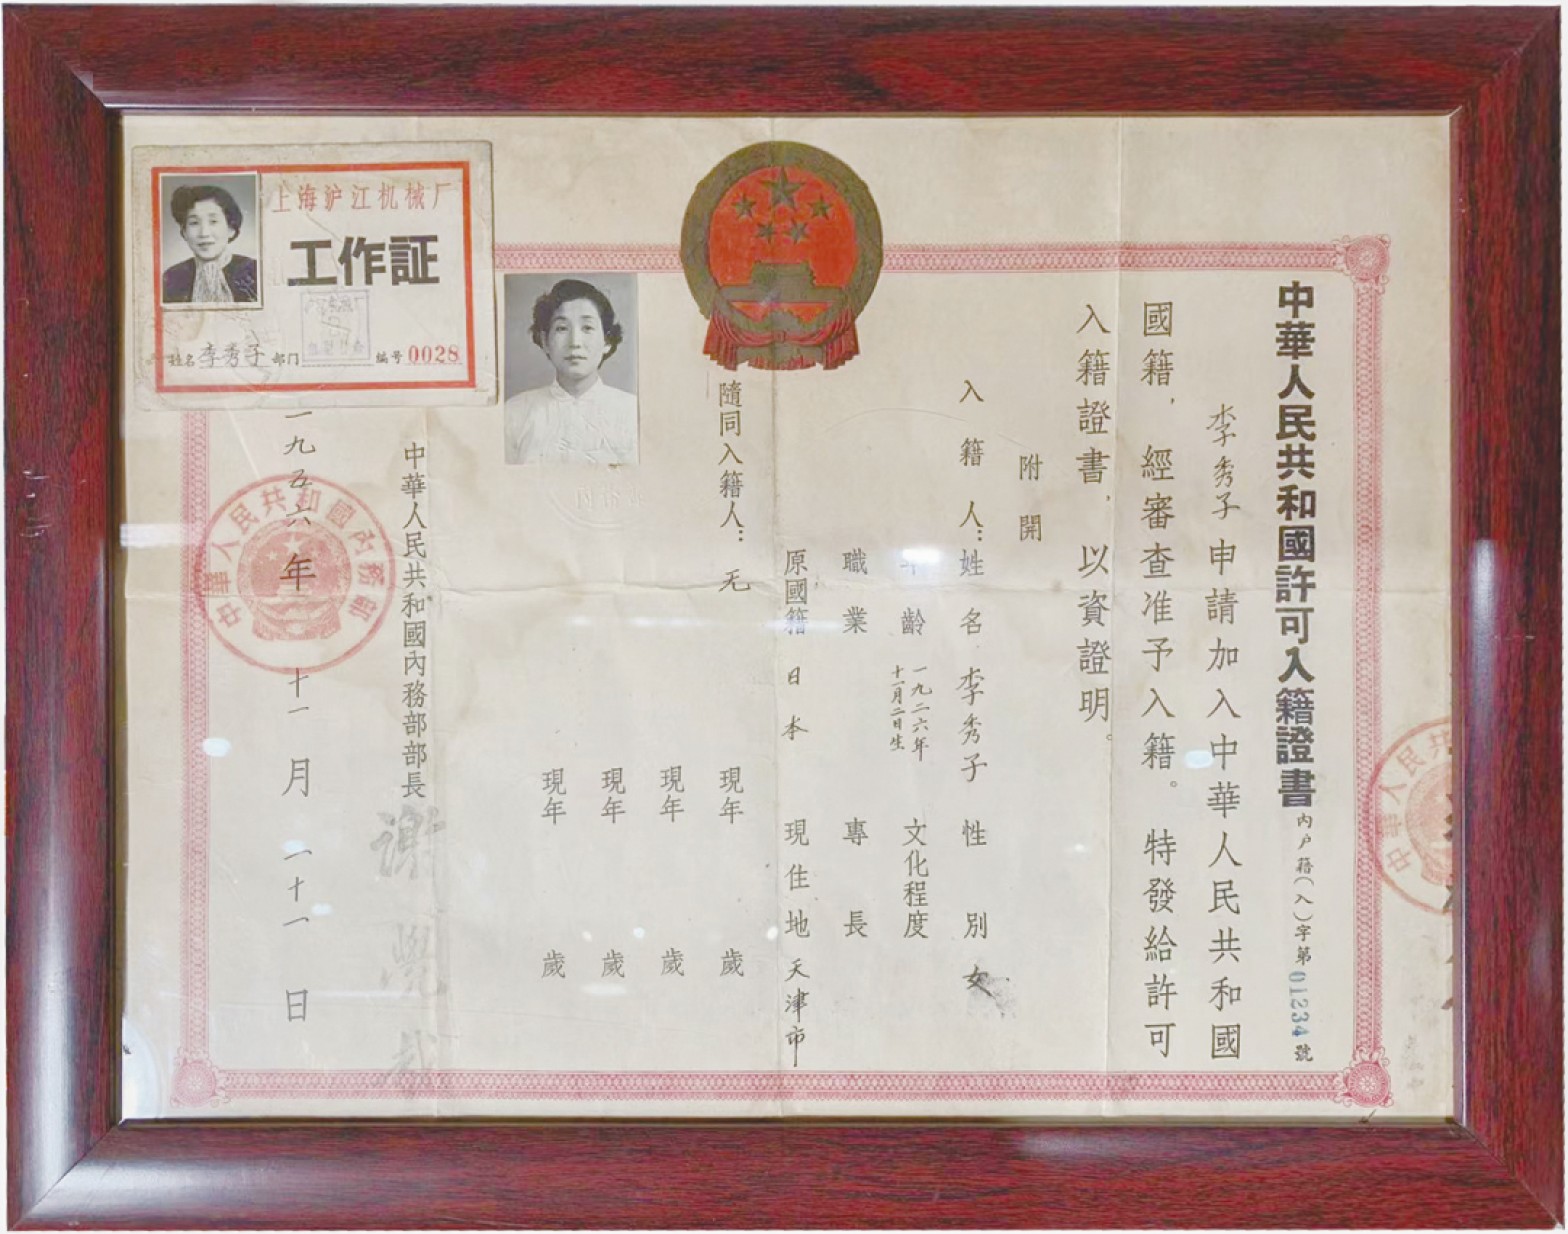 中華人民共和國許可入籍證書 內户籍(入)字第01234號
李秀子申請加入中華人民共和國
國籍，經審查准予入籍。特發給許可
入籍證書，以資證明。
附開
入籍人：姓名 李秀子 性別 女
年齡 一九二六年十一月二日生 文化程度
職業 專長
原國籍 日本 現住地 天津市
隨同入籍人：无 現年 歲
現年 歲
現年 歲
現年 歲
中華人民共和國內務部部長 謝覺哉
一九五六年十一月二十一日
中華人民共和國內務部
上海沪江机械厂
工作証
姓名 李秀子 部门 编号 0028
中華人民共